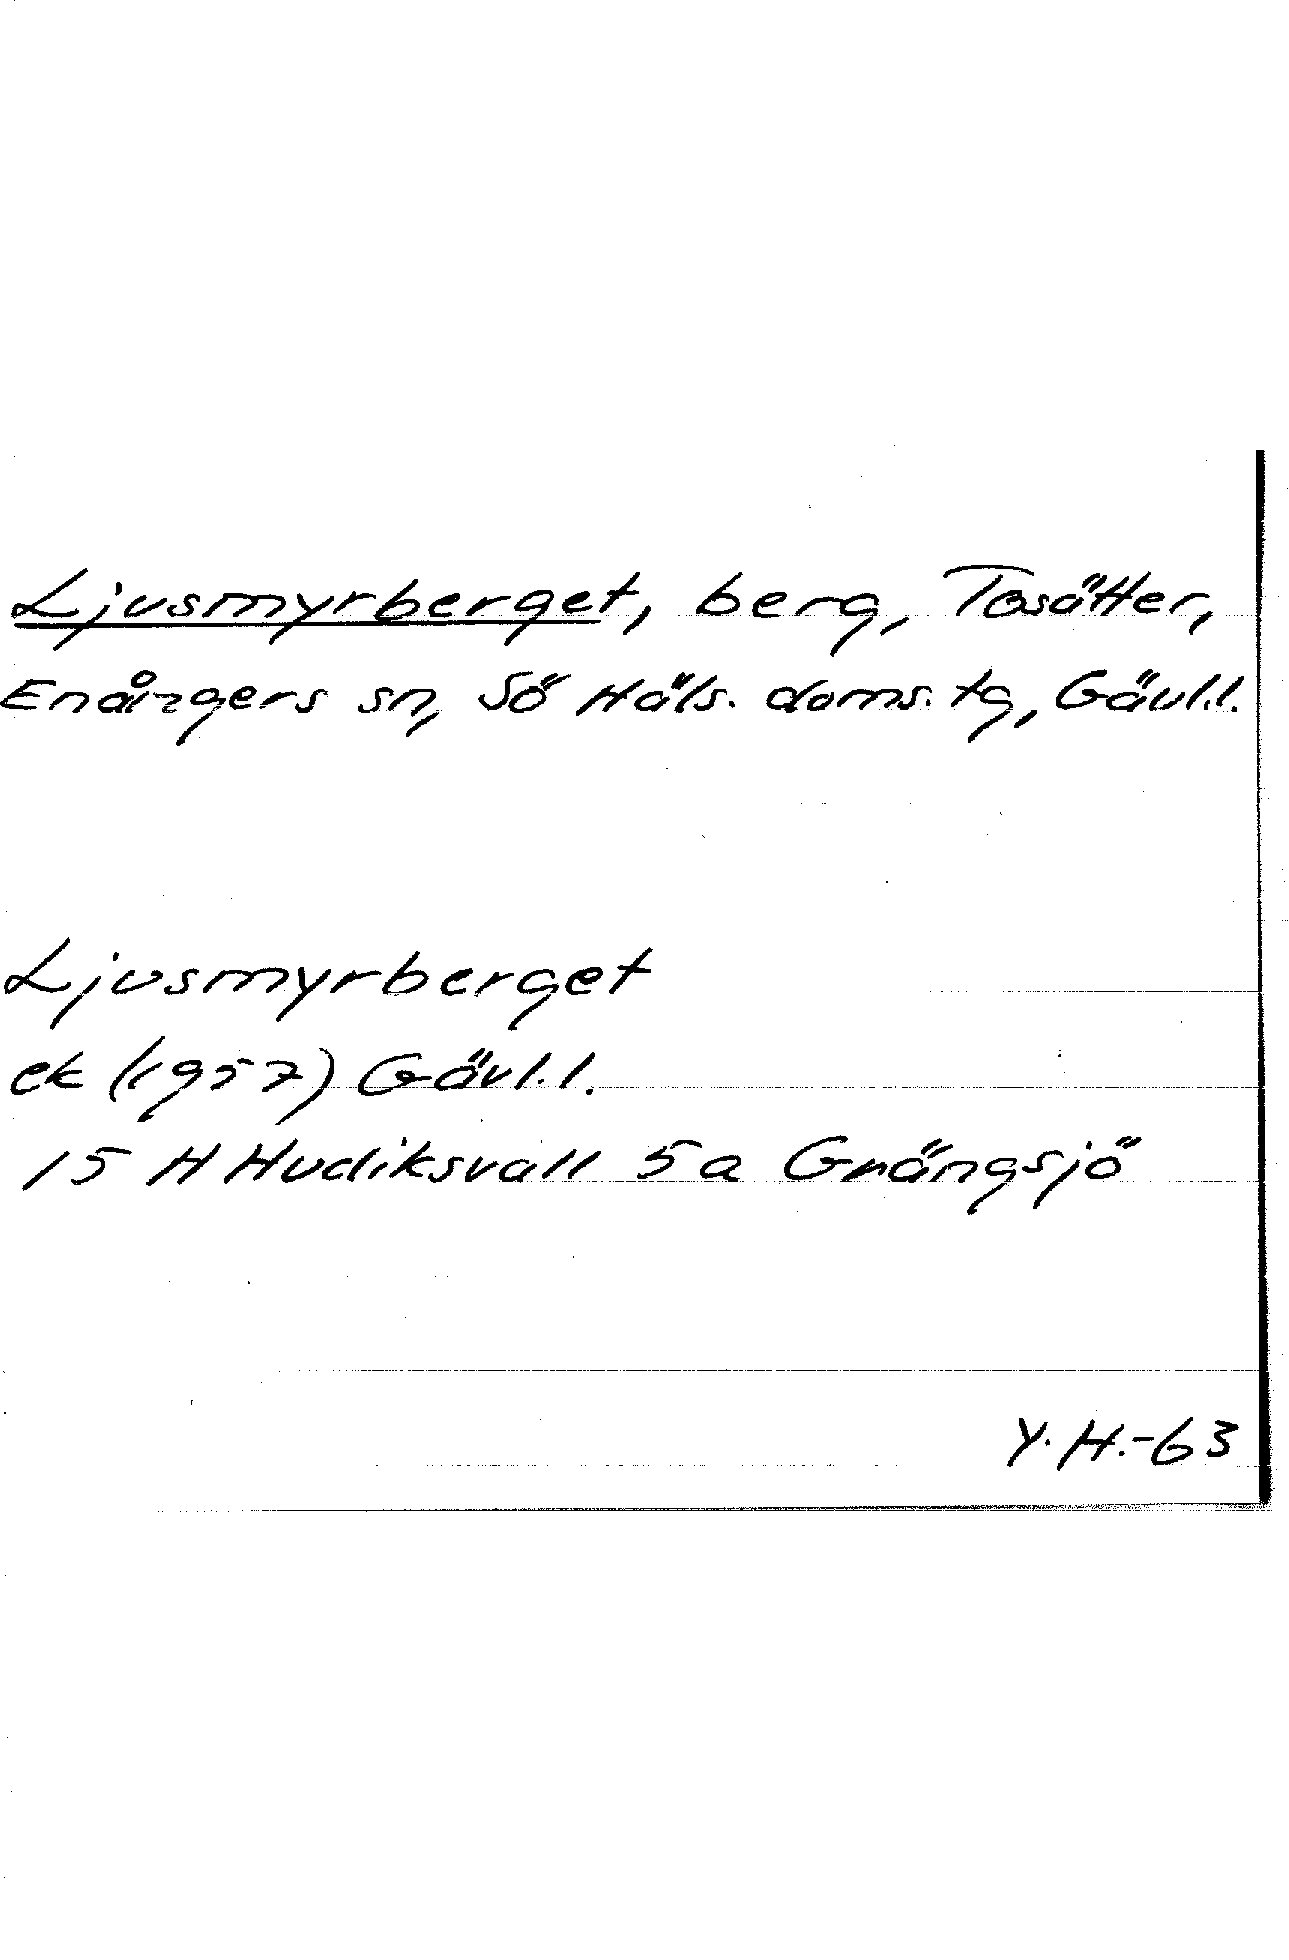 Ljusmyrberget, berg, Tosätter,
Enångers sn, Sö Häls. doms. tg, Gävl.l.
Ljusmyrberget
ek (1957) Gävl.l.
15 H Hudiksvall 5a Gnängsjö
Y.H.-63